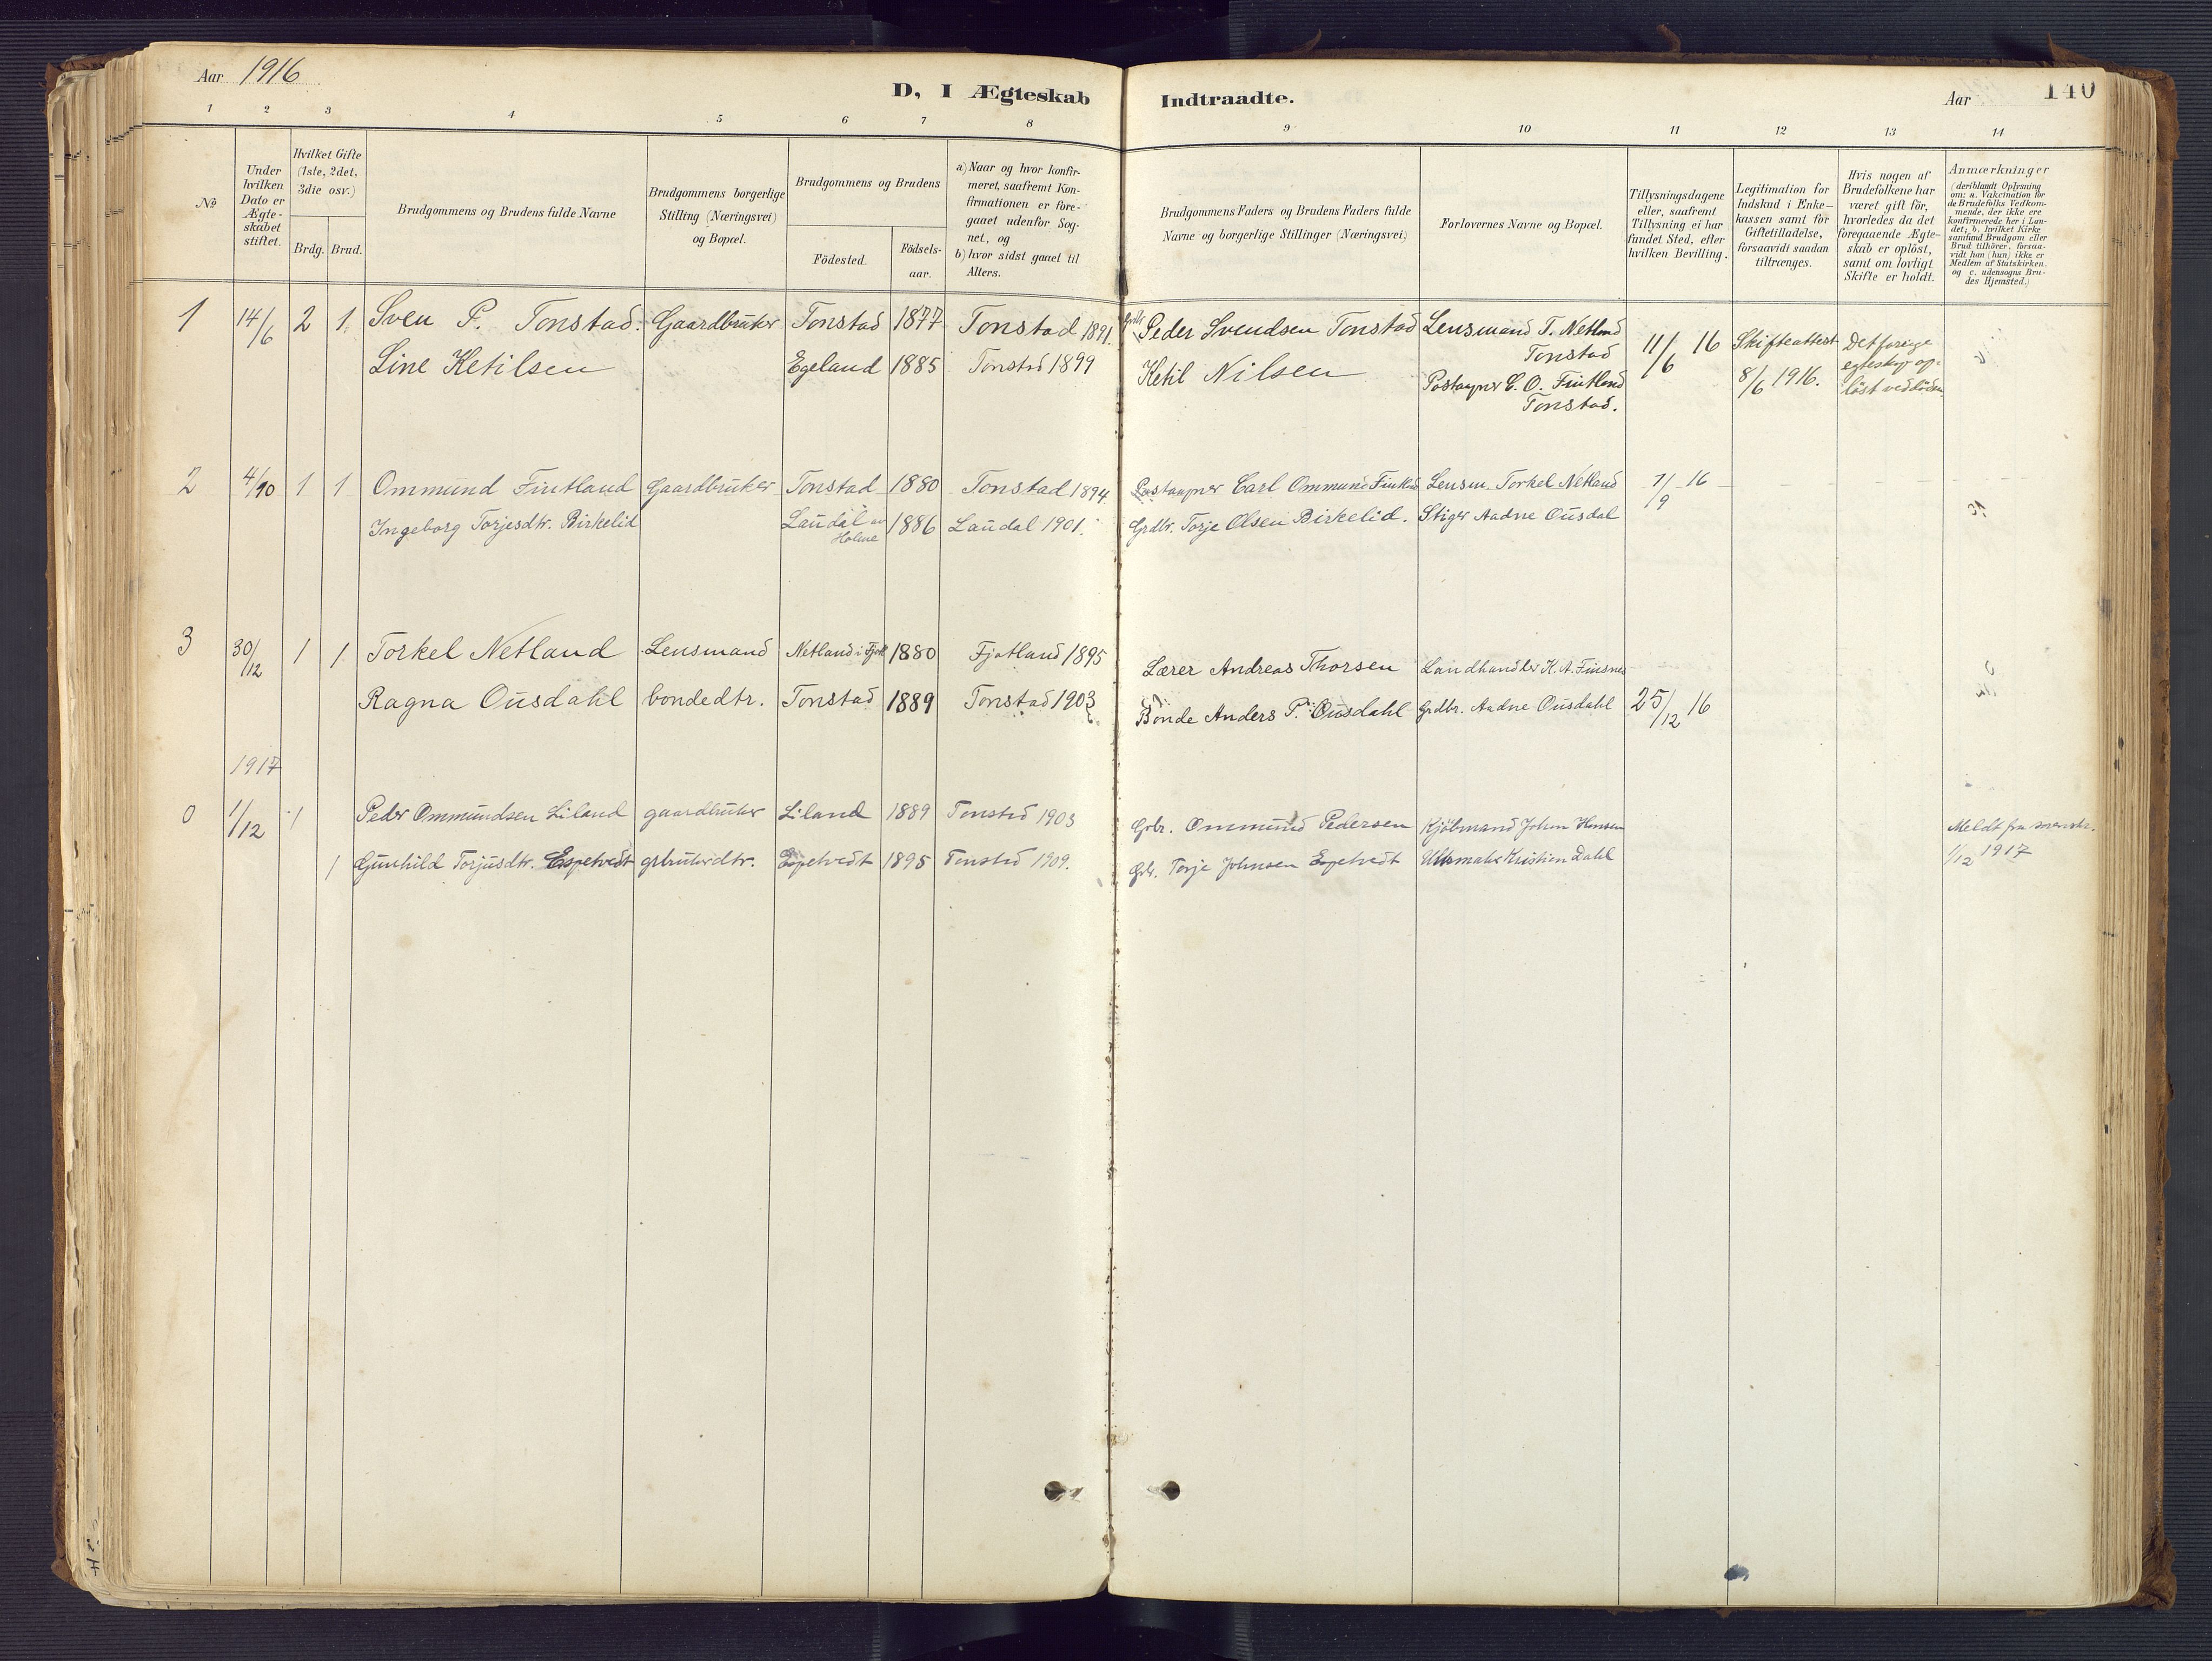 Aar 1916
D, I Ægteskab Indtraadte.
Aar
140
1 2 3 4 5 6 7 8 9 10 11 12 13 14
No
Under hvilken Dato er Ægteskabet stiftet.
Hvilket Gifte (1ste, 2det, 3die osv.)
Brdg. Brud.
Brudgommens og Brudens fulde Navne
Brudgommens borgerlige Stilling (Næringsvei) og Bopæl.
Brudgommens og Brudens
Födested. Födselsaar.
a) Naar og hvor konfirmeret, saafremt Konfirmationen er foregaaet udenfor Sognet, og
b) hvor sidst gaaet til Alters.
Brudgommens Faders og Brudens Faders fulde Navne og borgerlige Stillinger (Næringsvei)
Forlovernes Navne og Bopæl.
Tillysningsdagene eller, saafremt Tillysning ei har fundet Sted, efter hvilken Bevilling.
Legitimation for Indskud i Enkekassen samt for Giftetilladelse, forsaavidt saadan tiltrænges.
Hvis nogen af Brudefolkene har været gift för, hvorledes da det foregaaende Ægteskab er oplöst, samt om lovligt Skifte er holdt.
Anmærkninger
(deriblandt Oplysning om: a. Vakcination for de Brudefolks Vedkommende, der ikke ere konfirmerede her i Landet; b. hvilket Kirkesamfund Brudgom eller Brud tilhörer, forsaavidt han (hun) ikke er Medlem af Statskirken, og c. udensogns Brudes Hjemsted.)
1 14/6 2 1 Sven P. Tonstad. Gaardbruker Tonstad 1877 Tonstad 1891. Peder Svendsen Tonstad Lensmand T. Netland Tonstad 11/6 16 Skifteattest 8/6 1916. Det forrige egteskap oplöst ved döden
Line Ketilsen Egeland 1885 Tonstad 1899 Ketil Nilsen Postaapner C. O. Fintland Tonstad.
2 4/10 1 1 Ommund Fintland Gaardbruker Tonstad 1880 Tonstad 1894 Postaapner Carl Ommund Fintland Lensm. Torkel Netland 7/9 16
Ingeborg Torjesdtr. Birkelid Laudal Holme 1886 Laudal 1901. Grdbr. Torje Olsen Birkelid. Stiger Aadne Ousdal
3 30/12 1 1 Torkel Netland Lensmand Netland i Fjotl 1880 Fjotland 1895 Lærer Andreas Thorsen Landhandler K. A. Finsnes
Ragna Ousdahl bondedtr. Tonstad 1889 Tonstad 1903 Bonde Anders P. Ousdahl Grdbr. Aadne Ousdahl 25/12 16
1917
0 1/12 1 Peder Ommundsen Liland gaardbruker Liland 1889 Tonstad 1903 Grbr. Ommund Pedersen Kjöbmand Johan Hansen Meldt fra sorenskr.
1 Gunhild Torjusdtr. Espetvedt grbrukerdtr. Espetvedt 1895 Tonstad 1909. Grbr. Torje Johnsen Espetvedt Kristian Dahl 1/12 1917